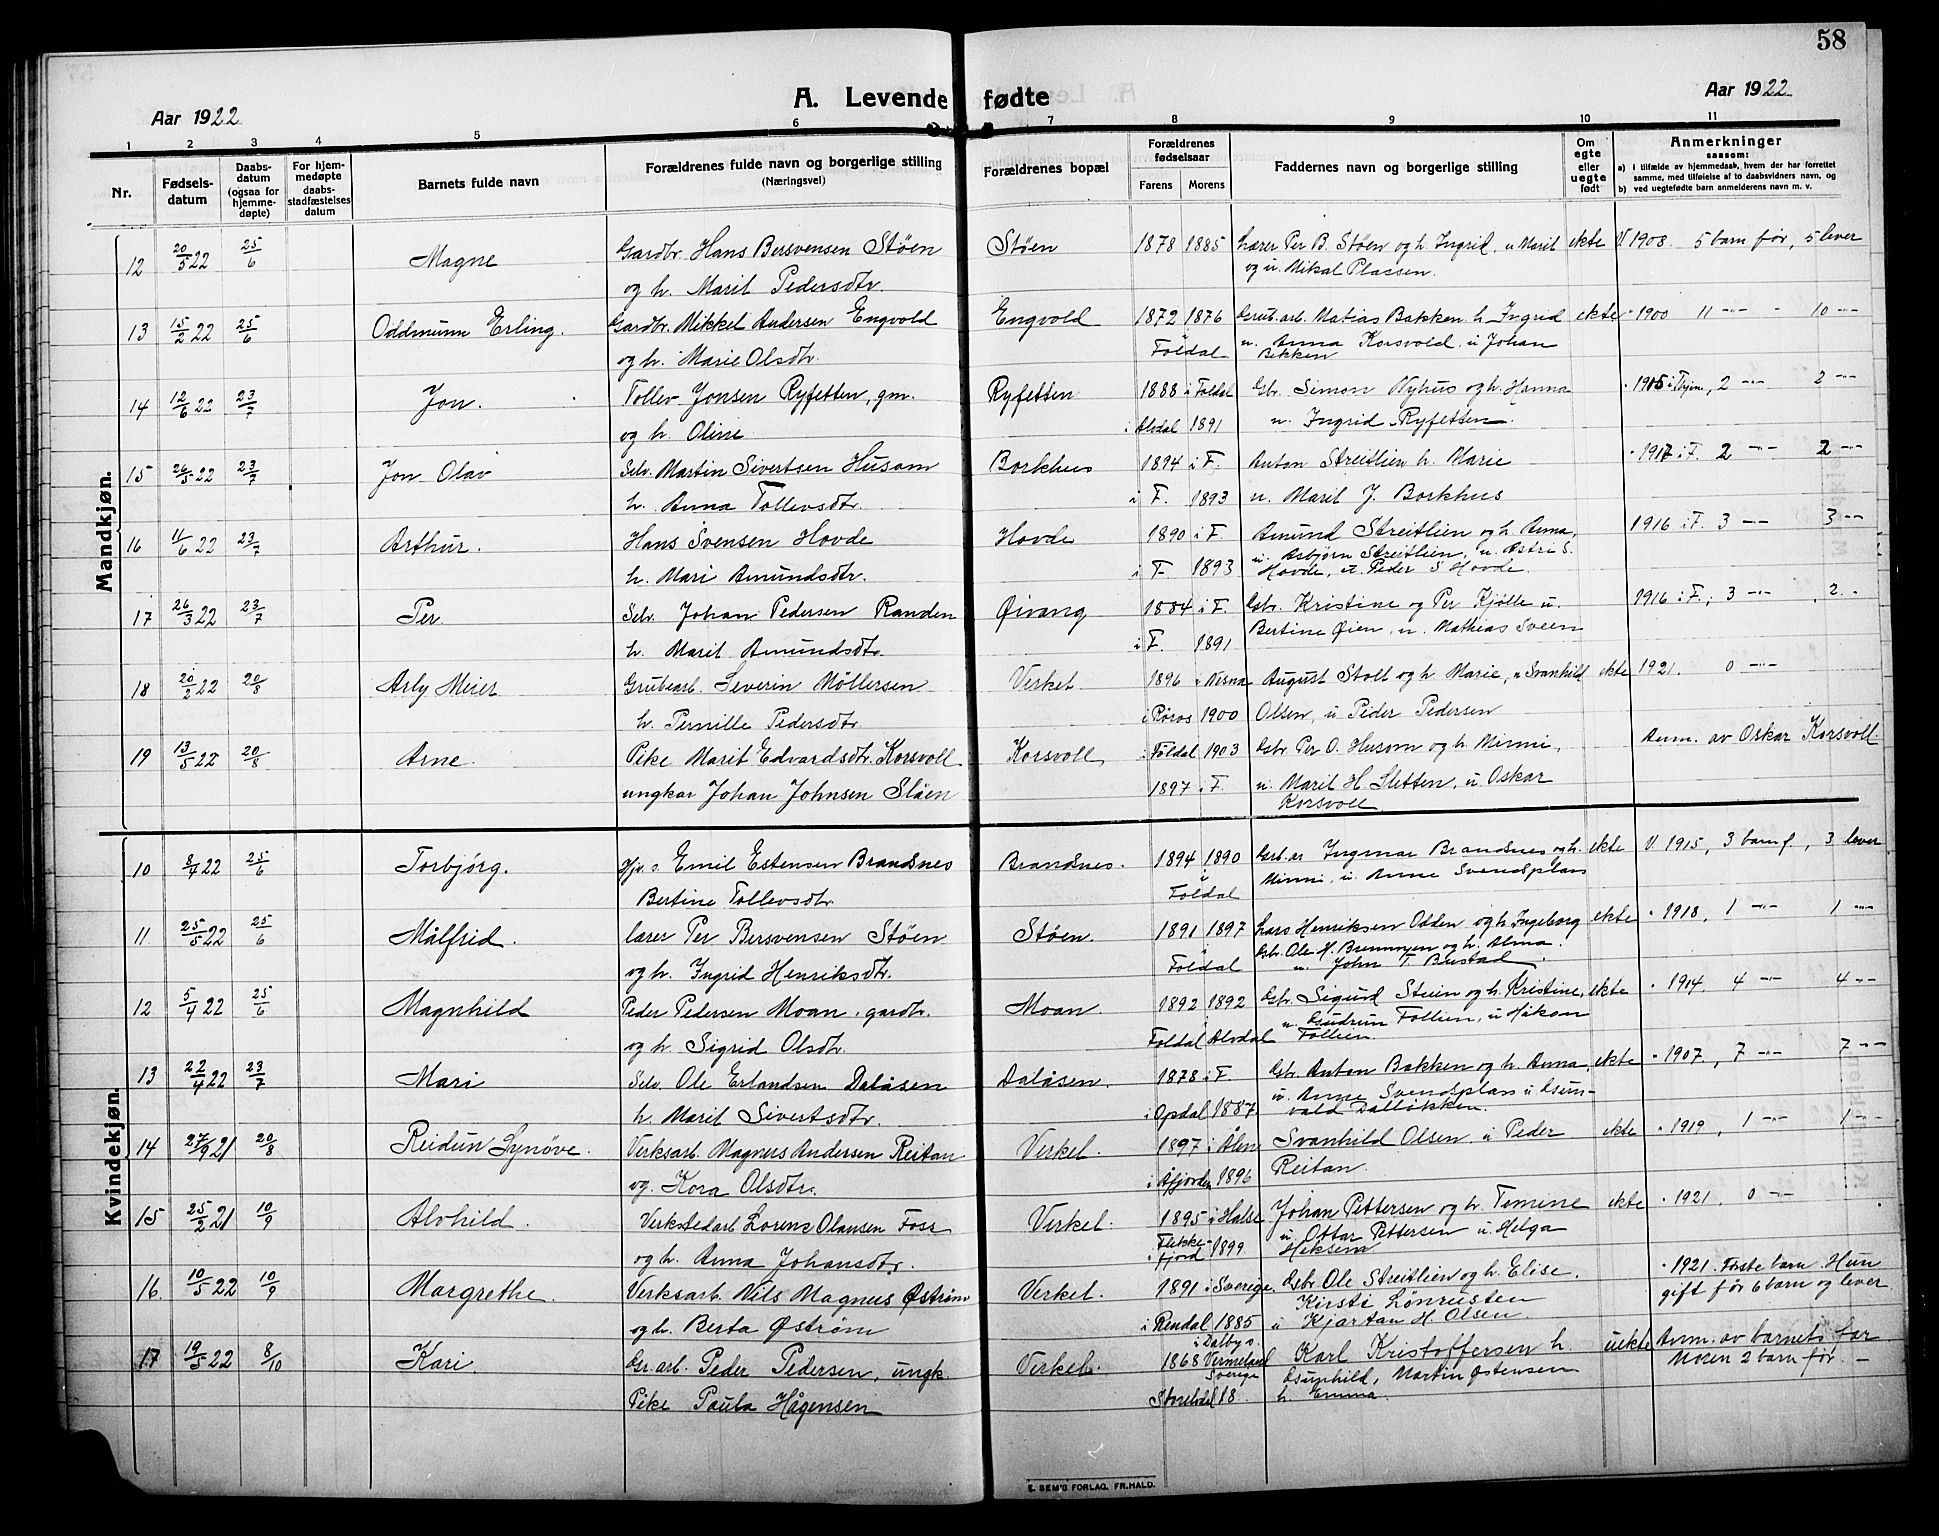 58
A. Levende fødte
Aar 1922
Aar 1922
1 2 3 4 5 6 7 8 9 10 11
Nr.
Fødsels-datum
Daabs-datum (ogsaa for hjemme-døpte)
For hjem-medøpte daabs-stadfæstelses datum
Barnets fulde navn
Forældrenes fulde navn og borgerlige stilling
(Næringsvei)
Forældrenes bopæl
Forældrenes fødselsaar
Farens Morens
Faddernes navn og borgerlige stilling
Om egte eller uegte født
Anmerkninger
saasom:
a) i tilfælde av hjemmedaab, hvem der har forrettet samme, med tilføielse af to daabsvidners navn, og
b) ved uegtefødte barn anmelderens navn m. v.
Mandkjøn.
12 20/5 22 25/6 Magne Gardbr. Hans Bersvensen Støen Støen 1878 1885 Lærer Per B. Støen og h. Ingrid, u. Marit ekte V 1908. 5 barn før, 5 lever
og h. Marit Pedersdtr. og u. Mikal Plassen.
13 15/2 22 25/6 Oddmunn Erling. Gardbr. Mikkel Andersen Engvold Engvold 1872 1876 Grub.arb. Matias Bakken h. Ingrid ekte " 1900 11 -"- 10 -"-
og h. Marie Olsdtr. Foldal u. Anna Korsvold, u Johan
Bekken
14 12/6 22 23/7 Jon. Tollev Jonsen Ryfetten, gm. Ryfetten 1888 i Foldal Gbr. Simon Nyhus og h. Hanna " 1915 i Tyinn, 2 -"- 2 -"-
og h. Oline i Alvdal 1891 u. Ingrid Ryfetten.
15 26/5 22 23/7 Jon Olav Selv. Martin Sivertsen Husom Borkhus 1894 i F. Anton Streitlien h. Marie " 1917 i F. 2 -"- 2 -"-
h. Anna Tollevsdtr. i F. 1893 u. Marit J. Borkhus
16 11/6 22 23/7 Arthur. Hans Svensen Hovde Hovde 1890 i F. Amund Streitlien og h. Anna, 1916 i F. 3 -"- 3 -"-
h. Mari Amundsdtr. i F. 1893 u. Asbjørn Streitlien, u. Astri S.
Hovde, u. Peder S Hovde.
17 26/3 22 23/7 Per Selv. Johan Pedersen Randen Øivang 1884 i F. Gbr. Kristine og Per Kjølle u. 1916 i F.; 3 -"- 2 -
h. Marit Amundsdtr. i F. 1891 Bertine Øien, u. Mathias Sveen
18 20/2 22 20/8 Arly Meier Grubearb. Severin Møllersen Verket 1896 i Nesna August Stolt og h. Marie, u Svanhild ekte 1921. 0 -"-
h. Pernille Pedersdtr. i Røros 1900 Olsen, u Peder Pedersen
19 13/5 22 20/8 Arne Pike Marit Edvardsdtr. Korsvoll. Korsvoll i Foldal 1903 Gbr. Per O. Husom og h. Minni, Anm. av Oskar Korsvoll.
ungkar Johan Johnsen Sløen 1897 i F. u. Marit H Sletten, u Oskar
Korsvoll
Kvindekjøn.
10 8/4 22 25/6 Torbjørg. Hjv. s. Emil Estensen Brandsnes Brandsnes. 1894 1890 Grb. ar Ingmar Brandsnes og h. ekte V 1915, 3 barn f, 3 lever
Bertine Tollevsdtr. i Foldal Minni, u. Anne Svendsplass
11 25/5 22 25/6 Målfrid. lærer Per Bersvensen Støen Støen. 1891 1897 Lars Henriksen Odden og h. Ingeborg ekte " 1918, 1 -"- 1 -"-
og h. Ingrid Henriksdtr. i Foldal Gbr. Ole H. Brenmoen og h. Alma.
u. John T. Bustad.
12 5/4 22 25/6 Magnhild Peder Pedersen Moan, gardbr. Moan. 1892 1892 Gbr. Sigurd Steien og h. Kristine, ekte " 1914, 4 -"- 4 -"-
og h. Sigrid Olsdtr. Foldal i Alvdal u. Gudrun Follien, u Håkon
Follien.
13 22/4 22 23/7 Mari Selv. Ole Erlandsen Dalåsen Dalåsen. 1878 i F. Gbr. Anton Bakken og h. Anna, ekte " 1907, 7 -"- 7 -"-
h. Marit Sivertsdtr. i Opdal 1887 u. Anne Svendsplass u Gun-
vald Dalløkken.
14 27/9 21 20/8 Reidun Synøve. Verksarb. Magnus Andersen Reitan Verket. 1897 i Ålen Svanhild Olsen, u Peder ekte " 1919, 1 -"- 1 -"-
og. Kora Olsdtr. i Åfjorden 1896 Reitan.
15 25/2 21 10/9 Alvhild. Verkstedarb Lorenz Olausen Foss Verket. 1895 i Halse Johan Pettersen og h. Temine ekte " 1921. 0 -"-
og h. Anna Johansdtr. i Flekke-fjord 1899 u. Ottar Pettersen u. Helga
Heksem
16. 10/5 22 10/9 Margrethe. Verksarb. Nils Magnus Østrøm Verket. 1891 i Sverige Gbr. Ole Streitlien og h. Elise. " 1921. Første barn. Hun
og h. Berta Østrøm i Rendal 1885 Kirsti Lønrusten gift før 6 barn og lever
u Kjartan H. Olsen.
17 19/5 22 8/10 Kari. Gr.arb. Peder Pedersen, ungk. Verket. 1868 i Dalby s. Vermeland Sverige Karl Kristoffersen h. uekte Anm. av barnets far
Pike Paula Hågensen Storelvdal 18. Gunhild, Martin Østensen Moren 2 barn før. -
h. Emma.
E. SEM'S FORLAG, FR.HALD.